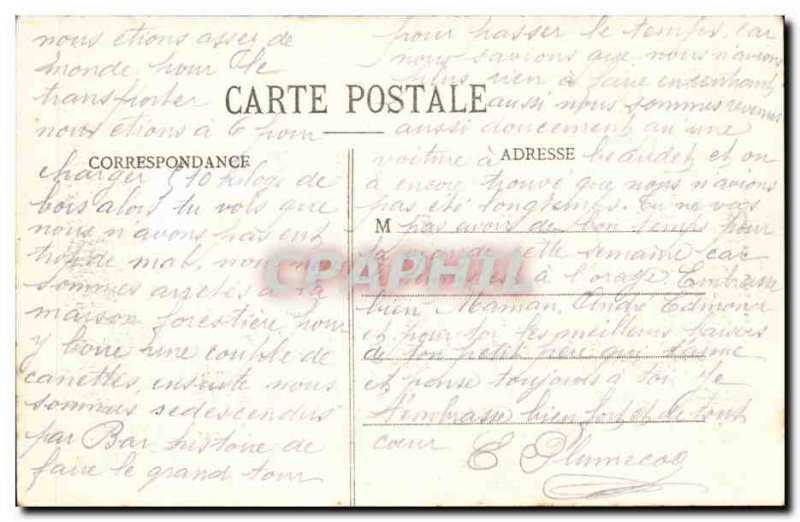 nous étions assez de
monde pour le
transporter
nous étions à 6 pour
CARTE POSTALE
CORRESPONDANCE
charger 510 kilogs de
bois alors tu vois que
nous n'avons pas eut
trop de mal, nous nous
sommes arretés à la
maison forestière pour
y boire une couble de
canettes, ensuite nous
sommes redescendus
par Bar histoire de
faire le grand tour
pour passer le temps, car
nous savions que nous n'avions
plus rien à faire en rentrant
aussi nous sommes revenus
aussi doucement qu'une
voiture à beaudet et on
ADRESSE
à encore trouvé que nous n'avions
pas été longtemps. Tu ne vas
M
pas avoir de bon temps pour
la cette semaine car
à l'orage Embrasse
bien Maman, André Edmond
et pour toi les meilleurs baisers
de ton petit qui t'aime
et pense toujours à toi Je
t'embrasse bien fort et de tout
coeur
E Plumecoq
CAPHIL